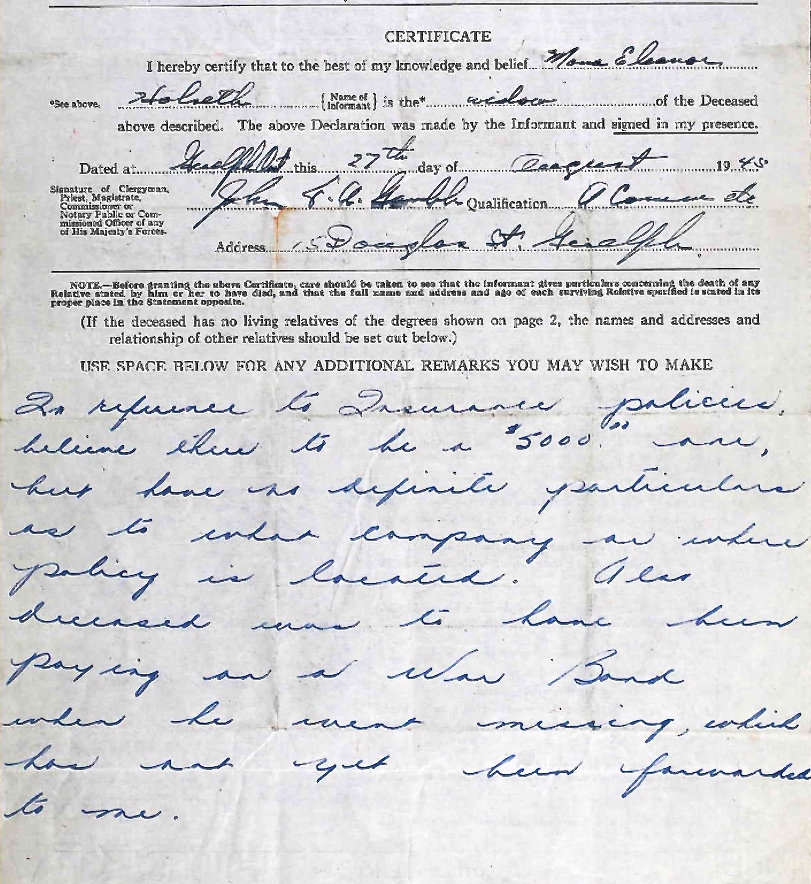 CERTIFICATE
I hereby certify that to the best of my knowledge and belief Mona Eleanor
*See above. Holseth {Name of Informant} is the* widow of the Deceased
above described. The above Declaration was made by the Informant and signed in my presence.
Dated at Guelph Ont this 27th day of August 1945
Signature of Clergyman,
Priest, Magistrate,
Commissioner or
Notary Public or Com-
missioned Officer of any
of His Majesty's Forces.
John F. A. Qualification A Comm etc
Address 15 Douglas St. Guelph.
NOTE.—Before granting the above Certificate, care should be taken to see that the informant gives particulars concerning the death of any
Relative stated by him or her to have died, and that the full name and address and age of each surviving Relative specified is stated in its
proper place in the Statement opposite.
(If the deceased has no living relatives of the degrees shown on page 2, the names and addresses and
relationship of other relatives should be set out below.)
USE SPACE BELOW FOR ANY ADDITIONAL REMARKS YOU MAY WISH TO MAKE
In reference to Insurance policies,
believe there to be a $5000.00 one,
but have no definite particulars
as to what company or where
policy is located. Also
deceased was to have been
paying on a War Bond
when he went missing, which
has not yet been forwarded
to me.